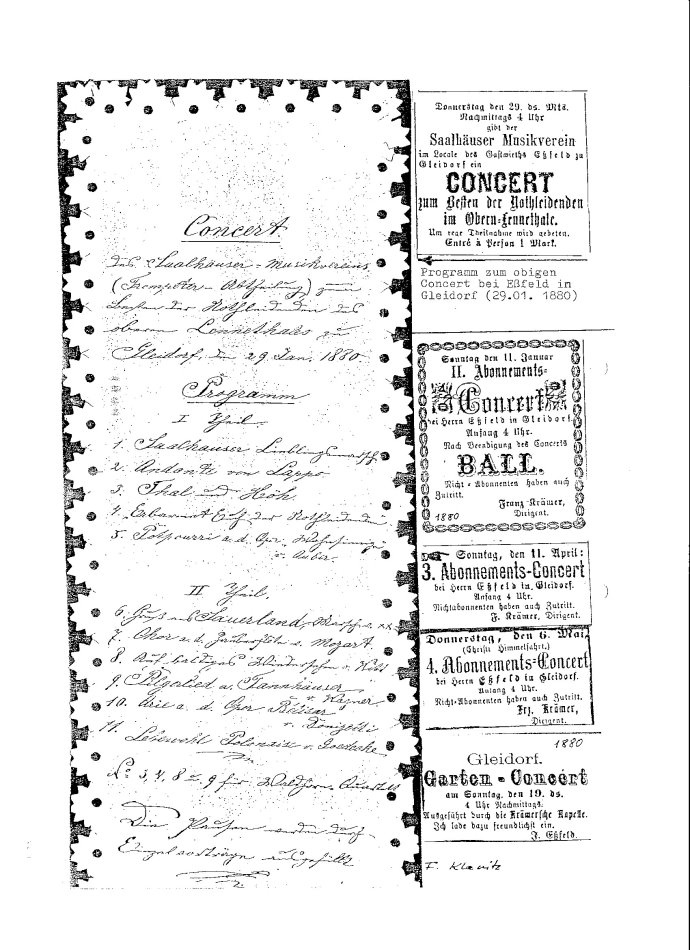 Concert
des Saalhauser-Musikvereins
(Trompeter-Abtheilung) zum
Besten der Nothleidenden des
obern Lennethales zu
Gleidorf, den 29 Jan. 1880
Programm
I Theil.
1. Saalhauser Lieblingsmarsch
2. Andante von Lappe
3. Thal und Höh
4. Erbarmt Euch der Nothleidenden
5. Potpourri a. d. Oper
v. Auber.
II Theil.
6. Gruß aus Sauerland, Marsch v. xx
7. Chor a. d. Zauberflöte v. Mozart
8. Auf baldiges Wiedersehen v.
9. Pilgerlied a. Tannhäuser
v. Wagner
10. Arie a. d. Oper Belisar
v. Donizetti
11. Lebewohl Polonaise v.
No 3, 4, 8 u. 9 für Waldhorn-Quartett
Die Pausen werden durch
Einzelvorträge ausgefüllt
Donnerstag den 29. ds. Mts.
Nachmittags 4 Uhr
gibt der
Saalhäuser Musikverein
im Locale des Gastwirths Eßfeld zu
Gleidorf ein
CONCERT
zum Besten der Nothleidenden
im Obern-Lennethale.
Um rege Theilnahme wird gebeten.
Entré à Person 1 Mark.
Programm zum obigen
Concert bei Eßfeld in
Gleidorf (29.01. 1880)
Sonntag den 11. Januar
II. Abonnements-
Concert
bei Herrn Eßfeld in Gleidorf.
Anfang 4 Uhr.
Nach Beendigung des Concerts
BALL.
Nicht-Abonnenten haben auch
Zutritt.
Franz Krämer,
1880
Dirigent.
Sonntag, den 11. April:
3. Abonnements-Concert
bei Herrn Eßfeld in Gleidorf.
Anfang 4 Uhr.
Nichtabonnenten haben auch Zutritt.
F. Krämer, Dirigent.
Donnerstag, den 6. Mai,
(Christi Himmelfahrt.)
4. Abonnements-Concert
bei Herrn Eßfeld in Gleidorf.
Anfang 4 Uhr.
Nicht-Abonnenten haben auch Zutritt.
Frz. Krämer,
Dirigent.
1880
Gleidorf.
Garten-Concert
am Sonntag, den 19. ds.
4 Uhr Nachmittags.
Ausgeführt durch die Krämersche Kapelle.
Ich lade dazu freundlichst ein.
J. Eßfeld.
F.